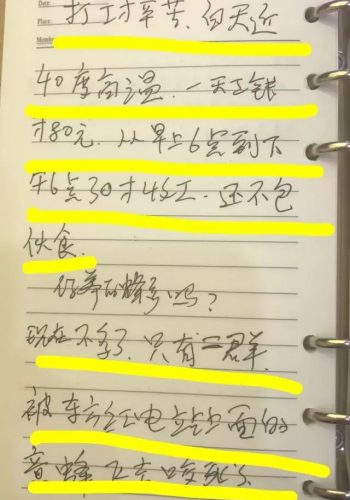 Date:
Place:
打工才辛苦,白天近
40度高温.一天工钱
才80元.从早上6点到下
午6点30才收工.还不包
伙食.
你养的蜂多吗?
现在不多了,只有二群.
被东方红电站上面的
意蜂飞来咬死了